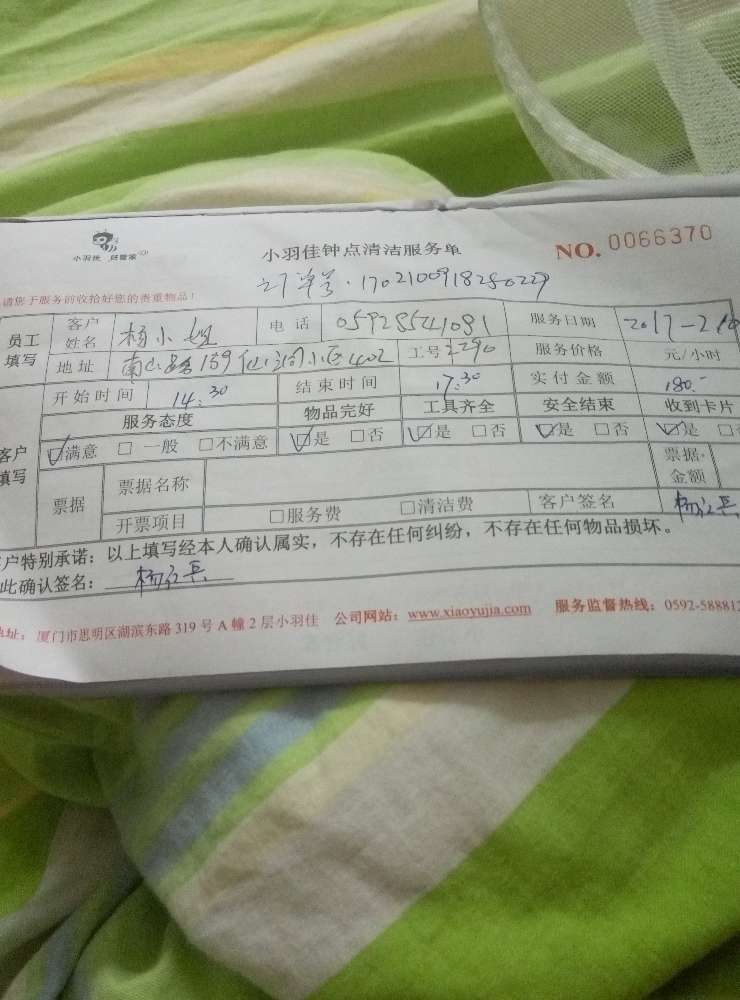 小羽佳 好管家
小羽佳钟点清洁服务单
NO. 0066370
订单号·1702100918250229
请您于服务前收拾好您的贵重物品！
员工填写 客户姓名 杨小姐 电话 05928541091 服务日期 2017-2
地址 159 小区402 工号 290 服务价格 元/小时
客户填写 开始时间 14:30 结束时间 17:30 实付金额 180.-
服务态度 物品完好 工具齐全 安全结束 收到卡片
☑满意 □一般 □不满意 ☑是 □否 ☑是 □否 ☑是 □否 ☑是 □
票据 票据名称 票据金额
开票项目 □服务费 □清洁费 客户签名
户特别承诺：以上填写经本人确认属实，不存在任何纠纷，不存在任何物品损坏。
此确认签名：
地址：厦门市思明区湖滨东路319号A幢2层小羽佳 公司网站：www.xiaoyujia.com 服务监督热线：0592-588812